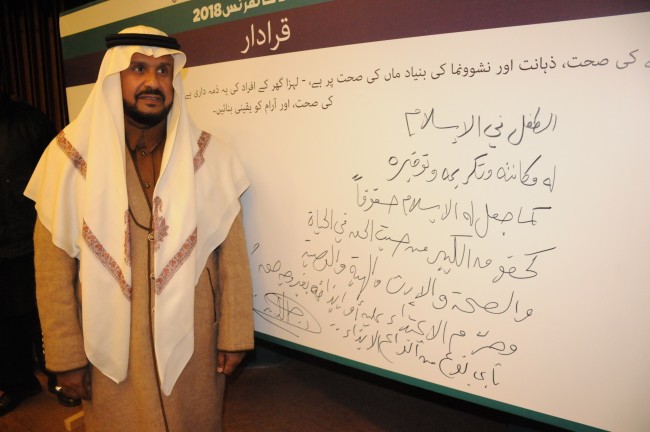 کانفرنس 2018
قرادار
کی صحت، ذہانت اور نشوونما کی بنیاد ماں کی صحت پر ہے، - لہزا گھر کے افراد کی یہ ذمہ داری ہے
کی صحت، اور آرام کو یقینی بنائیں۔
الطفل في الإسلام
له مكانته وتكريمه وتوقيره
كما جعل له الإسلام حقوقاً
كحقوق الكبير من حيث الحق في الحياة
والصحة والإرث والهبة والوصية
وحرّم الاعتداء عليه أو إيذائه
بأي نوع من أنواع الإيذاء